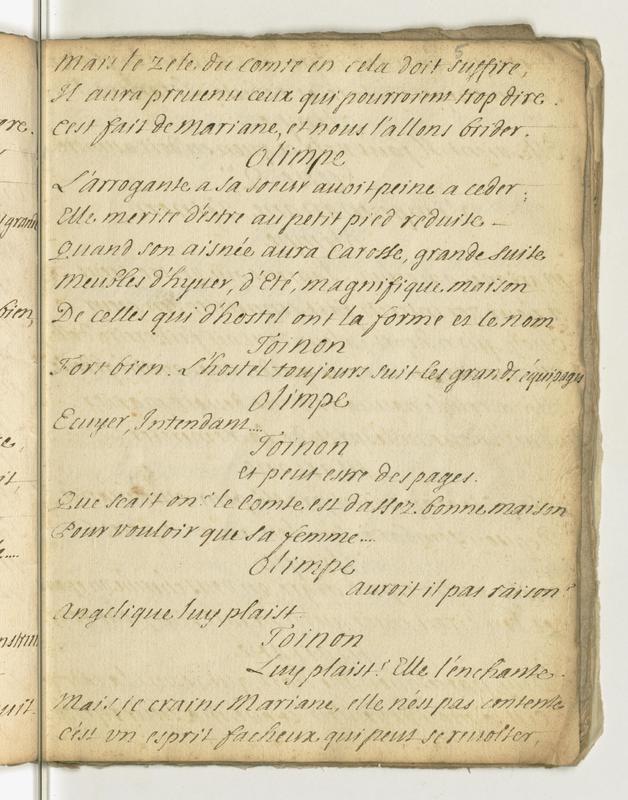 5
Mais le zele du comte en cela doit suffire,
Il aura prevenu ceux qui pourroient trop dire.
C'est fait de Mariane, et nous l'allons brider.
Olimpe
L'arrogante a sa soeur avoit peine a ceder;
Elle merite d'estre au petit pied reduite
Quand son aisnée aura Carosse, grande suite
Meubles d'hyver, d'Eté, magnifique maison
De celles qui d'hostel ont la forme et le nom
Toinon
Fort bien. L'hostel toujours suit les grands équipages
Olimpe
Ecuyer, Intendant....
Toinon
et peut estre des pages.
Que scait on? le Comte est d'assez bonne maison
Pour vouloir que sa femme....
Olimpe
auroit il pas raison?
Angelique luy plaist.
Toinon
Luy plaist! Elle l'enchante.
Mais je crains Mariane, elle n'est pas contente
c'est un esprit facheux qui peut se revolter,